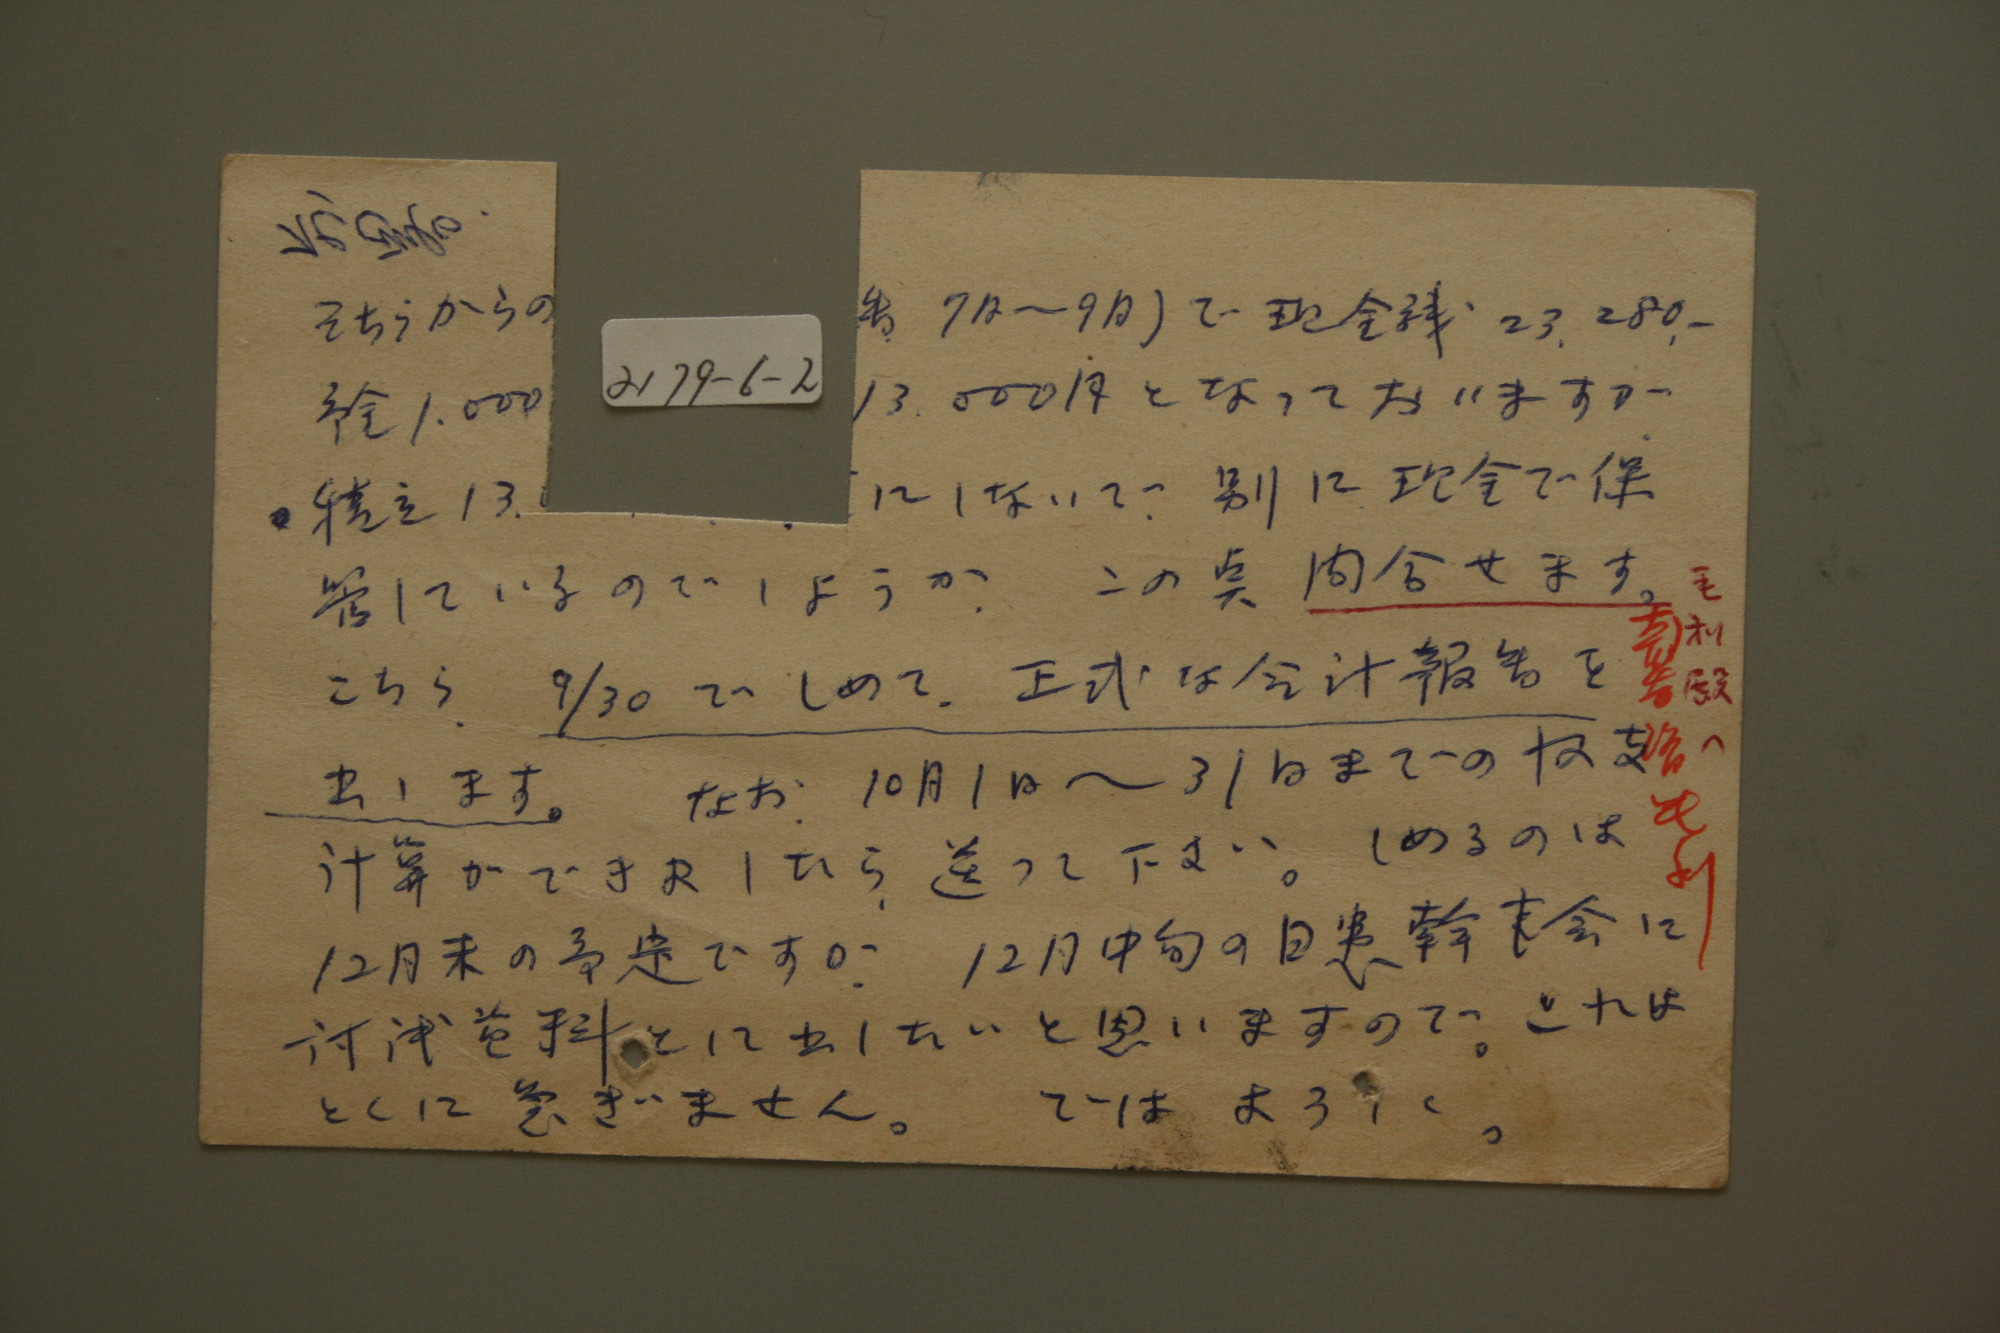 そちらからの
告 7月〜9月)で現金残 23.280.-
預金1.000
13.000円となっておりますが
積立13.
にしないで、別に現金で保
管しているのでしょうか? この点問合せます。
こちら、9/30でしめて、正式な会計報告を
出します。 なお、10月1日〜31日までの収支
計算ができましたら、送って下さい。しめるのは
12月末の予定ですが、12月中旬の日患幹事会に
討議資料とに出したいと思いますので。これは
とくに急ぎません。 では よろしく。
毛利殿へ
2179-6-2